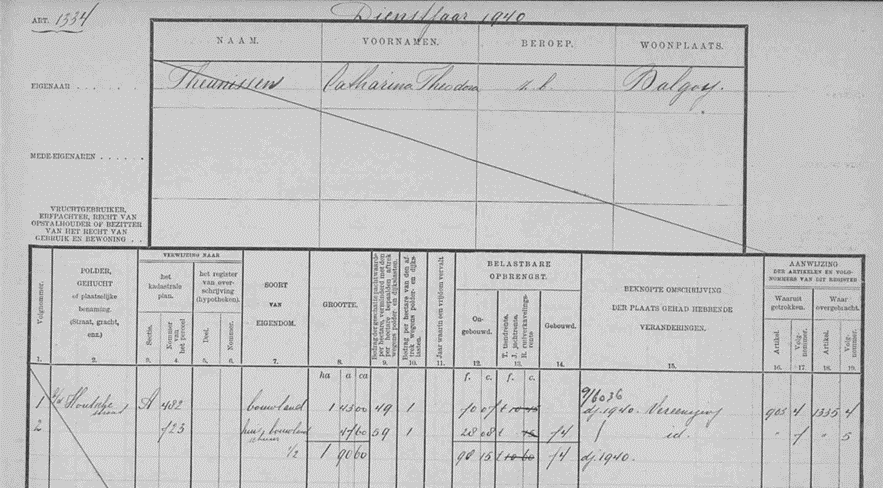 ART. 1334 Dienstjaar 1940
NAAM. VOORNAMEN. BEROEP. WOONPLAATS.
EIGENAAR . . . . . . . Theunissen Catharina Theodora z. b. Balgoy.
MEDE-EIGENAREN . . . . .
VRUCHTGEBRUIKER,
ERFPACHTER, RECHT VAN
OPSTALHOUDER OF BEZITTER
VAN HET RECHT VAN
GEBRUIK EN BEWONING . .
Volgnummer.
POLDER,
GEHUCHT
of plaatselijke
benaming.
(Straat, gracht,
enz.)
VERWIJZING NAAR
het
kadastrale
plan.
het register
van over-
schrijving
(hypotheken).
Sectie.
Nummer
van
het perceel
Deel.
Nummer.
SOORT
VAN
EIGENDOM.
GROOTTE.
Bedrag der geschatte pachtwaarde
per hectare, verminderd met den
per hectare bepaalden aftrek
wegens polder- en dijkslasten.
Bedrag per hectare van den af-
trek wegens polder- en dijks-
lasten.
Jaar waarin een vrijdom vervalt
BELASTBARE
OPBRENGST.
On-
gebouwd.
T. tiendrente.
J. jachtrente.
R. ruilverkavelings-
rente
Gebouwd.
BEKNOPTE OMSCHRIJVING
DER PLAATS GEHAD HEBBENDE
VERANDERINGEN.
AANWIJZING
DER ARTIKELEN EN VOLG-
NOMMERS VAN DIT REGISTER
Waaruit
getrokken.
Waar
overgebracht.
Artikel.
Volg-
nommer.
Artikel.
Volg-
nommer.
1. 2. 3. 4. 5. 6. 7. 8. 9. 10. 11. 12. 13. 14. 15. 16. 17. 18. 19.
ha a ca f. c. f. c.
9/6036
1 A 482 bouwland 1 43 00 49 1 70 07 dj. 1940. Vereeniging 905 4 1335 4
2 723 bouwland 47 60 59 1 28 08 74 id. " 7 " 5
1/2 1 90 60 98 15 74 dj. 1940.